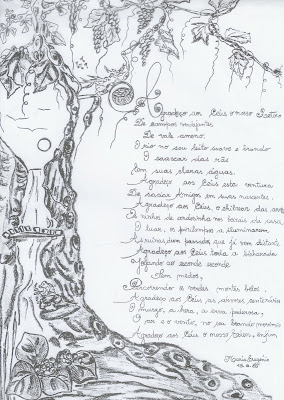 Agradeço aos Céus o nosso
De campos verdejantes
De vale ameno.
O rio no seu leito suave e
O coaxar das rãs
Com suas claras águas.
Agradeço aos Céus esta ventura
De saciar Amigos em suas nascentes.
Agradeço aos Céus, o chilrear das aves
Os ninhos de andorinha nos beirais da casa,
O luar, o pirilampo a iluminarem,
As ruínas dum passado que já vem distante
Agradeço aos Céus toda a
Jogando ao esconde esconde
Sem medos,
Percorrendo os verdes montes belos.
Agradeço aos Céus as árvores centenárias
O musgo, a hera, a erva
E o vento, no seu brando
Agradeço aos Céus o nosso enfim,
Maria Eugénia